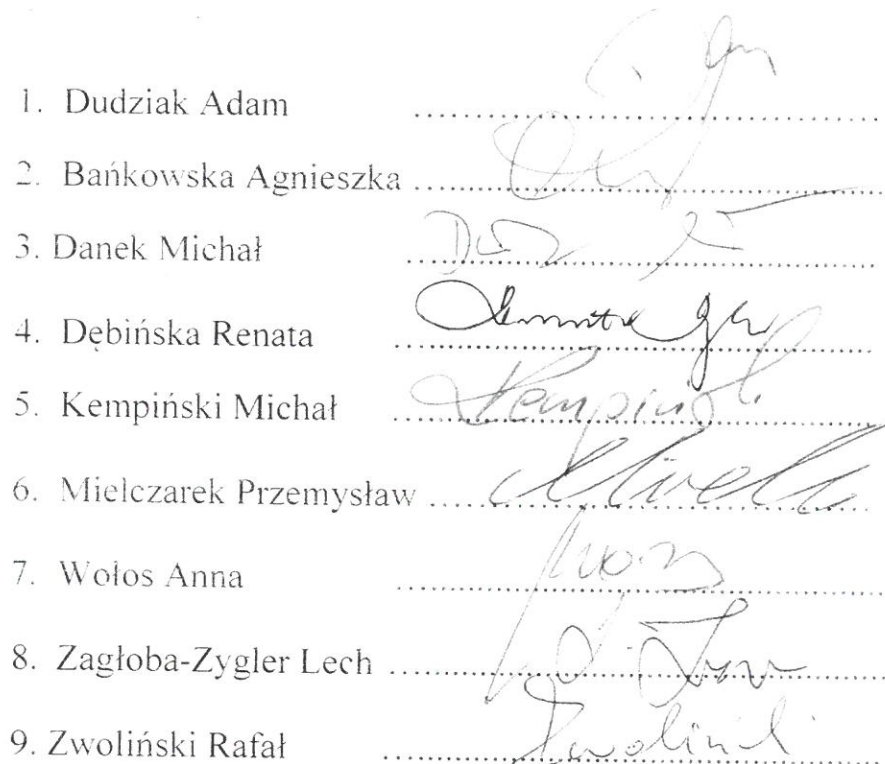 1. Dudziak Adam ........................
2. Bańkowska Agnieszka ........................
3. Danek Michał ........................
4. Dębińska Renata ........................
5. Kempiński Michał ........................ Kempiński
6. Mielczarek Przemysław ........................
7. Wołos Anna ........................
8. Zagłoba-Zygler Lech ........................
9. Zwoliński Rafał ........................ Zwoliński